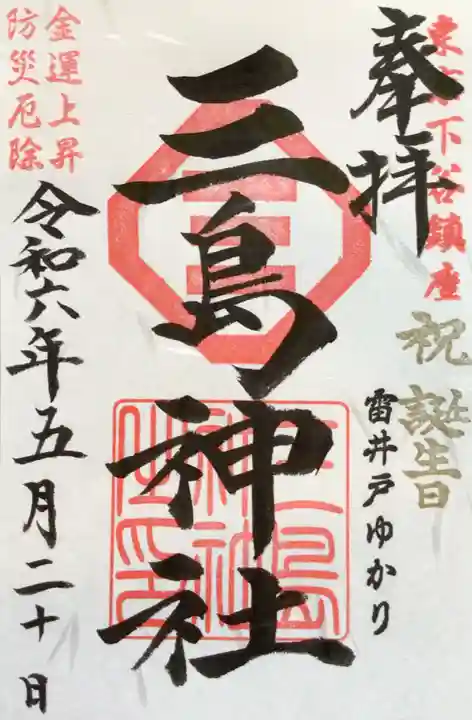 東京下谷鎮座
奉拝
祝 誕生日
雷井戸ゆかり
三島神社
金運上昇
防災厄除
令和六年五月二十日